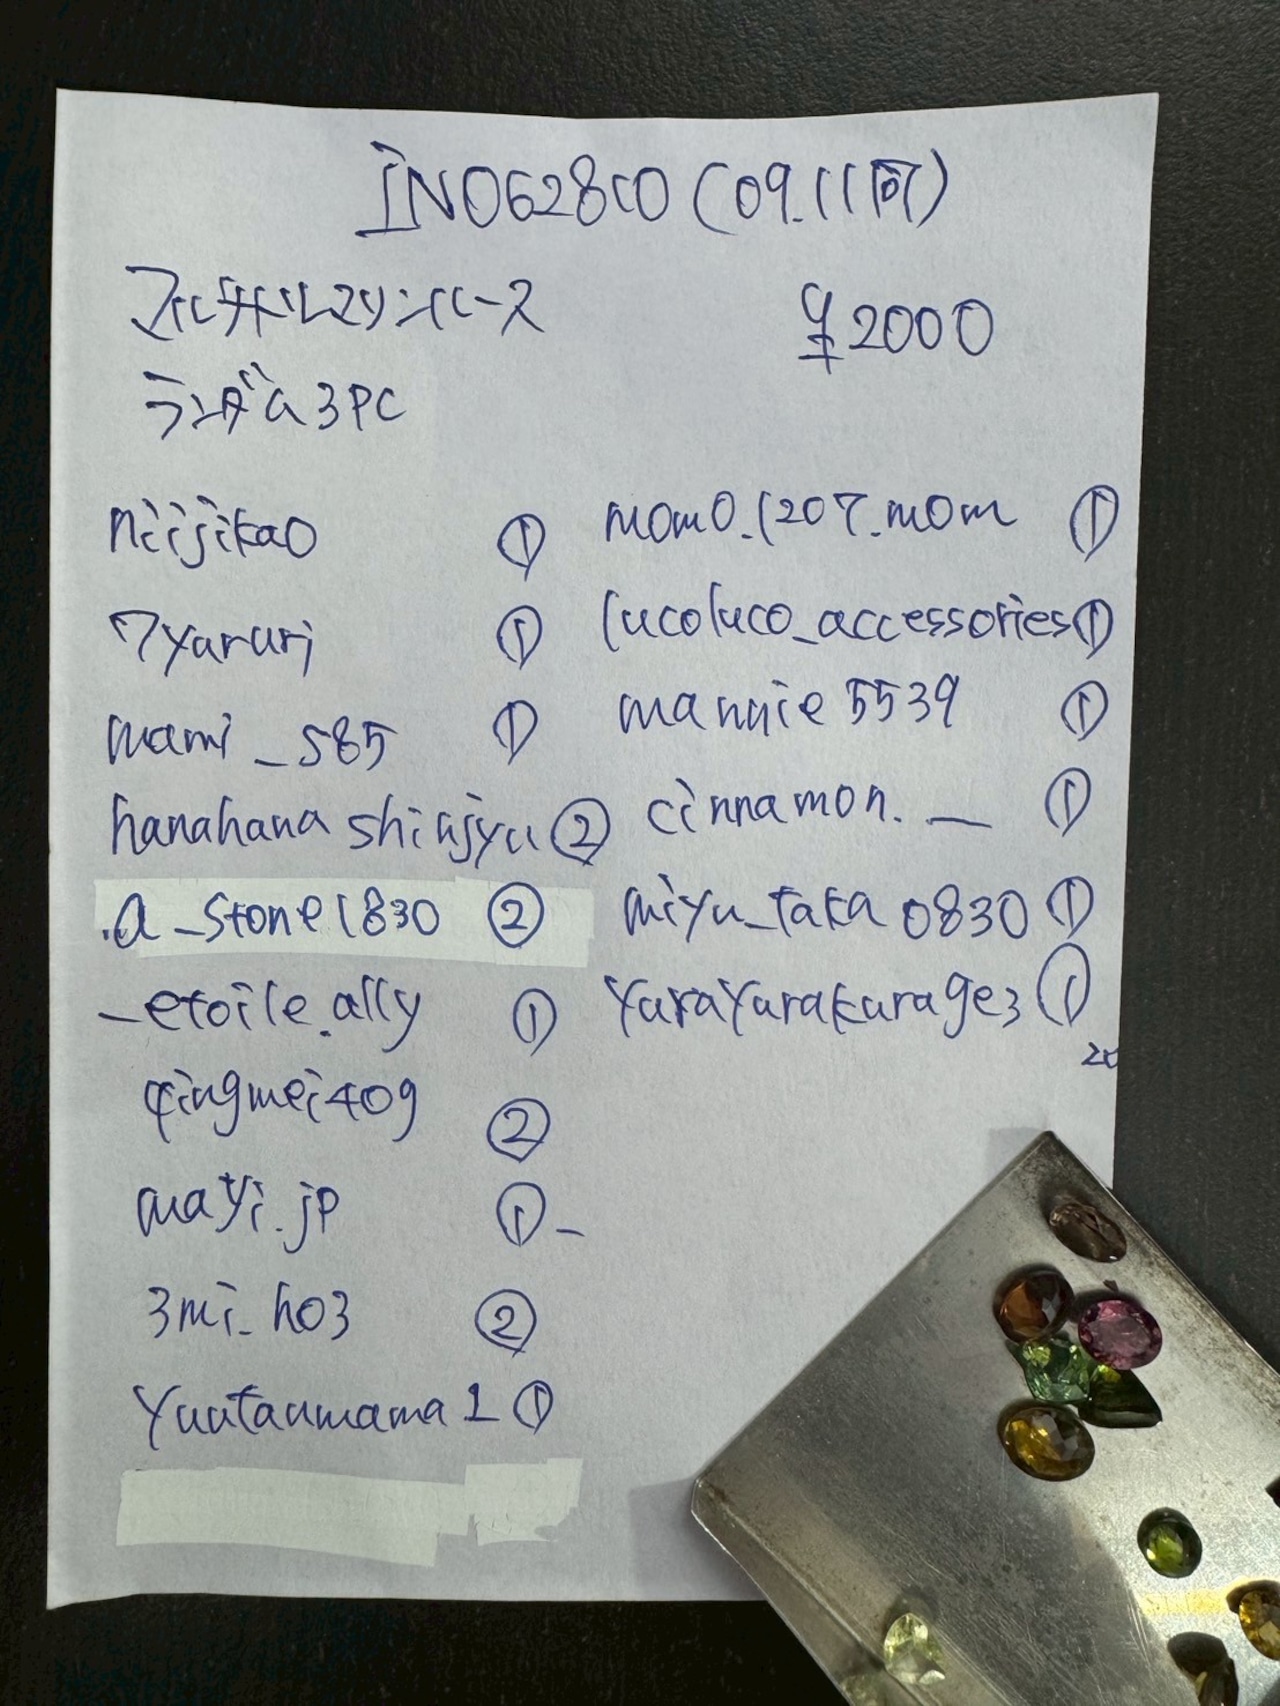 IN062810 (09.11同)
マルチカラートルマリンルース
¥2000
ランダム3PC
niijikao ①
7yaruri ①
mami_585 ①
hanahana shinjyu ②
.a_stone1830 ②
_etoile.ally ①
qingmei409 ②
mayi.jp ①_
3mi_ho3 ②
Yuutanmama1 ①
mom0.1207.mom ①
lucoluco_accessories ①
mannie5539 ①
cinnamon._ ①
miyu_taka0830 ①
yurayurakurage3 ①